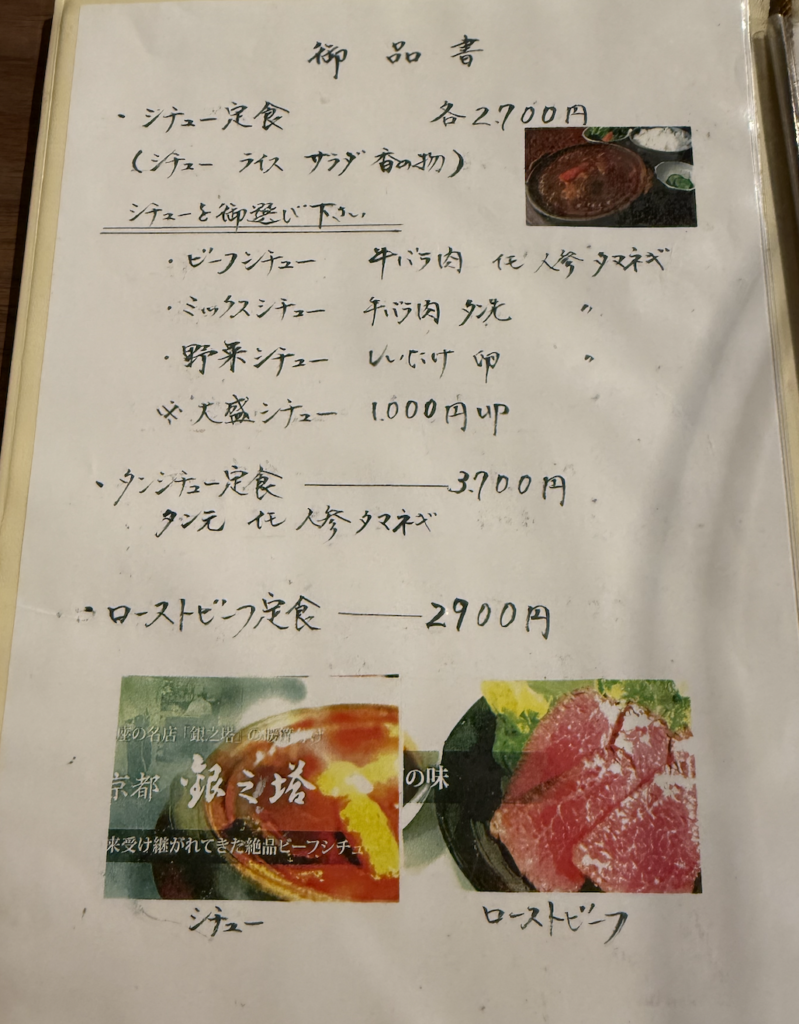 御品書
・シチュー定食 各2.700円
(シチュー ライス サラダ 香の物)
シチューを御選び下さい
・ビーフシチュー 牛バラ肉 イモ 人参 タマネギ
・ミックスシチュー 牛バラ肉 タン先 〃
・野菜シチュー しいたけ 卵 〃
※大盛シチュー 1.000円UP
・タンシチュー定食 ―― 3.700円
タン元 イモ 人参 タマネギ
・ローストビーフ定食 ―― 2900円
座の名店『銀之塔』の
京都 銀之塔
の味
来受け継がれてきた絶品ビーフシチュ
シチュー
ローストビーフ